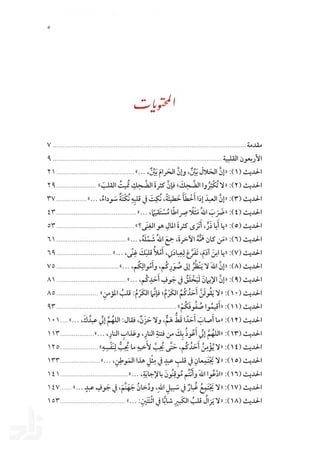 ٥
المحتويات
مقدمة ........ ٧
الأربعون القلبية ........ ٩
الحديث (١): «إِنَّ الحَلالَ بَيِّنٌ، وإِنَّ الحَرامَ بَيِّنٌ، ...» ........ ٢١
الحديث (٢): «لا تُكثِرُوا الضَّحِكَ؛ فإنَّ كثرةَ الضَّحِكِ تُمِيتُ القلبَ» ........ ٢٩
الحديث (٣): «إِنَّ العبدَ إذا أَخطأَ خطيئةً، نُكِتَ في قلبِهِ نُكْتَةٌ سَوداءُ، ...» ........ ٣٧
الحديث (٤): «ضَرَبَ اللهُ مَثَلًا صِراطًا مُسْتَقِيمًا، ...» ........ ٤٣
الحديث (٥): «يا أبا ذَرٍّ، أتَرَى كثرةَ المالِ هو الغِنَى؟» ........ ٥٣
الحديث (٦): «مَن كان هَمُّهُ الآخرةَ، جمعَ اللهُ شَمْلَهُ، ...» ........ ٦١
الحديث (٧): «يا ابنَ آدَمَ، تَفَرَّغْ لِعِبادَتِي، أَمْلأْ قلبَكَ غِنًى، ...» ........ ٦٩
الحديث (٨): «إِنَّ اللهَ لا يَنْظُرُ إلى صُوَرِكُم، وأَمْوالِكُم، ...» ........ ٧٥
الحديث (٩): «إِنَّ الإيمانَ لَيَخْلَقُ في جَوفِ أَحَدِكُم، ...» ........ ٨١
الحديث (١٠): «لا يَقُولَنَّ أحَدُكُمُ الكَرْمُ؛ فإنَّما الكَرْمُ: قلبُ المُؤمنِ» ........ ٨٥
الحديث (١١): «أَقِيمُوا صُفُوفَكُمْ» ........ ٩٣
الحديث (١٢): «ما أَصابَ أَحَدًا قَطُّ هَمٌّ، ولا حَزَنٌ، فقال: اللهُمَّ إِنِّي عبدُكَ، ...» ........ ١٠١
الحديث (١٣): «اللهُمَّ إِنِّي أَعُوذُ بِكَ من فتنةِ النارِ، وعَذابِ النارِ، ...» ........ ١١٣
الحديث (١٤): «لا يُؤْمِنُ أَحَدُكُم، حَتَّى يُحِبَّ لأخيهِ ما يُحِبُّ لِنَفْسِهِ» ........ ١٢٥
الحديث (١٥): «لا يَجْتَمِعانِ في قلبِ عبدٍ في مِثْلِ هذا المَوطِنِ، ...» ........ ١٣٣
الحديث (١٦): «ادْعُوا اللهَ وأَنْتُم مُوقِنُونَ بالإجابةِ، ...» ........ ١٤١
الحديث (١٧): «لا يَجْتَمِعُ غُبارٌ في سَبيلِ اللهِ، ودُخانُ جَهَنَّمَ، في جَوفِ عبدٍ ...» ........ ١٤٧
الحديث (١٨): «لا يَزالُ قلبُ الكَبيرِ شابًّا في اثْنَتَيْنِ: ...» ........ ١٥٣